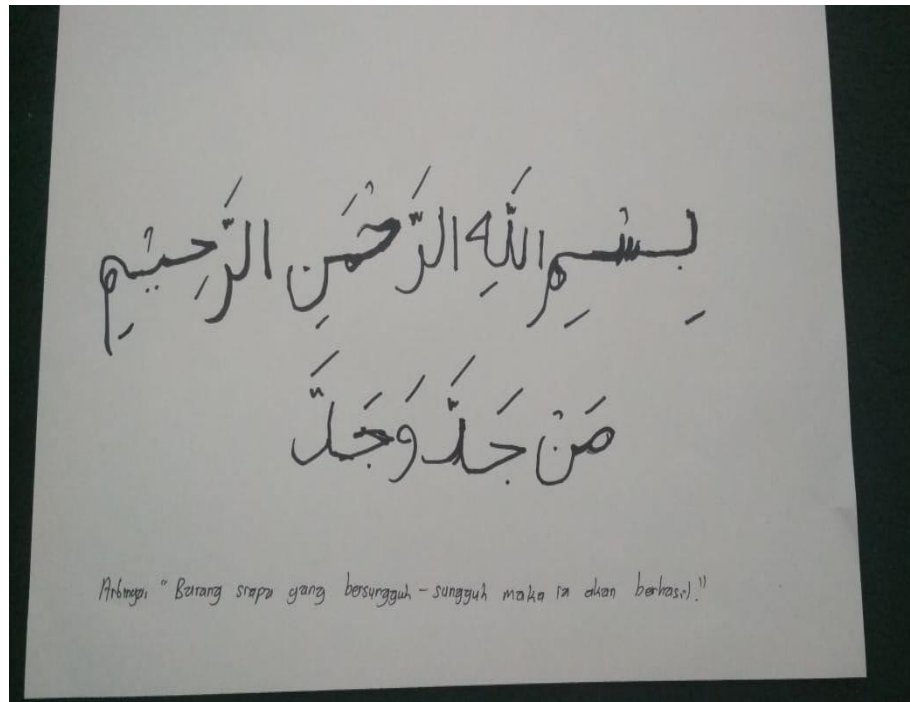 بِسْمِ اللَّهِ الرَّحْمٰنِ الرَّحِيْمِ
مَنْ جَدَّ وَجَدَّ
Artinya, "Barang siapa yang bersungguh - sungguh maka ia akan berhasil."